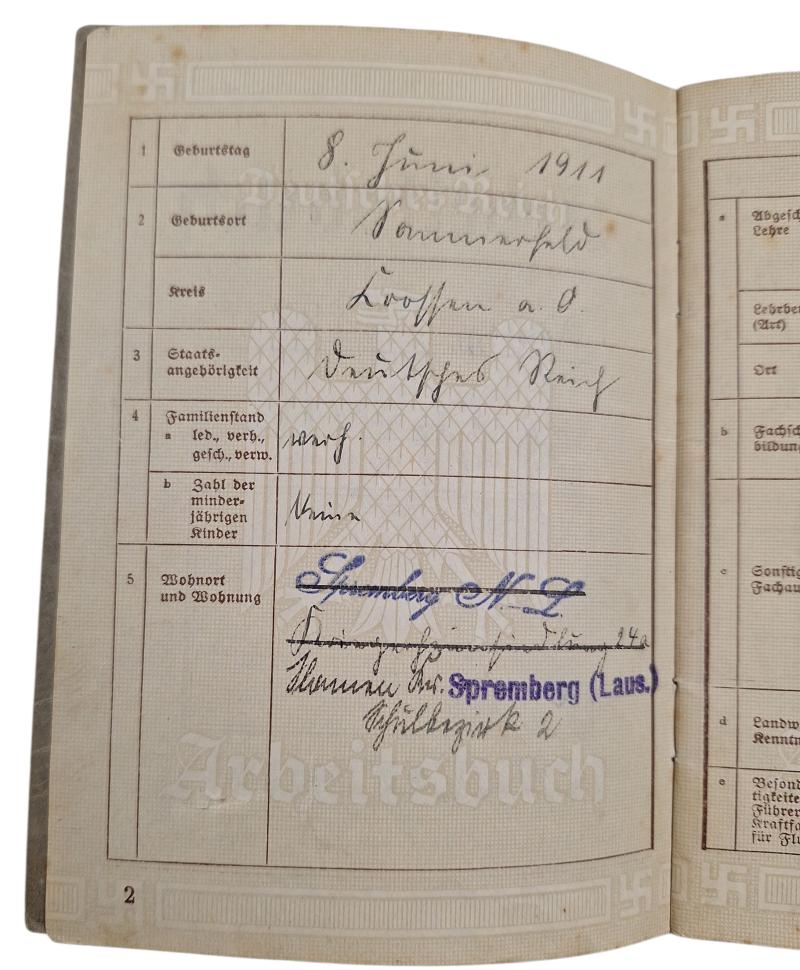 1 Geburtstag 8. Juni 1911
2 Geburtsort Sommerfeld
Kreis Crossen a. O.
3 Staats-
angehörigkeit Deutsches Reich
4 Familienstand
a led., verh.,
gesch., verw. verh.
b Zahl der
minder-
jährigen
Kinder keine
5 Wohnort
und Wohnung
Spremberg N-L
24a
Kr. Spremberg (Laus.)
Schulbezirk 2
Deutsches Reich
Arbeitsbuch
2
a Abgesch
Lehre
Lehrber
(Art)
Ort
b Fachsch
bildung
c Sonstig
Fachau
d Landw
Kenntn
e Besond
tigkeite
Führer
Kraftfa
für Flu